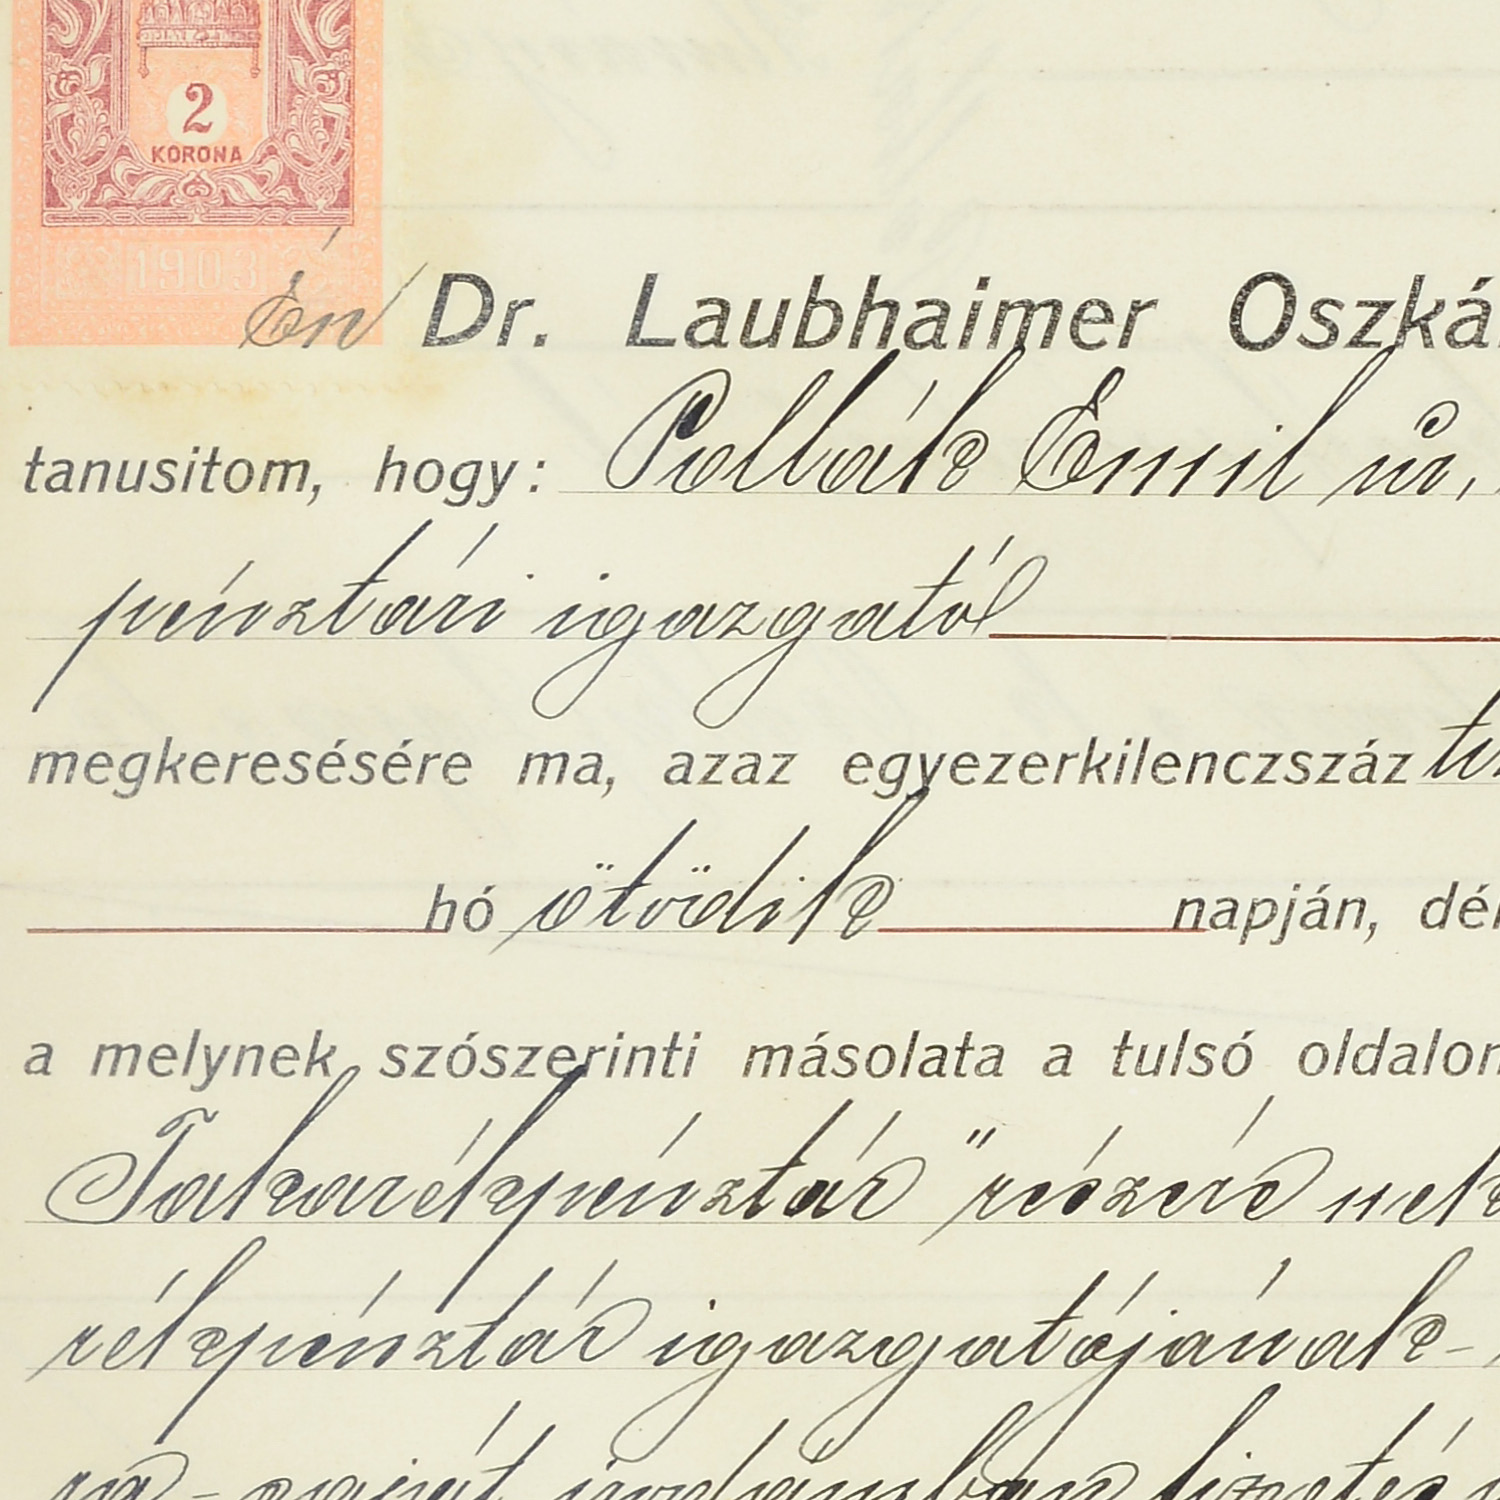 2
KORONA
1903
Én Dr. Laubhaimer Oszká
tanusitom, hogy: Pollák Emil úr,
pénztári igazgató
megkeresésére ma, azaz egyezerkilenczszáz
hó ötödik napján, dél
a melynek szószerinti másolata a tulsó oldalon
Takarékpénztár" részére
rékpénztár igazgatójának-
ra - saját irodámban fizetés